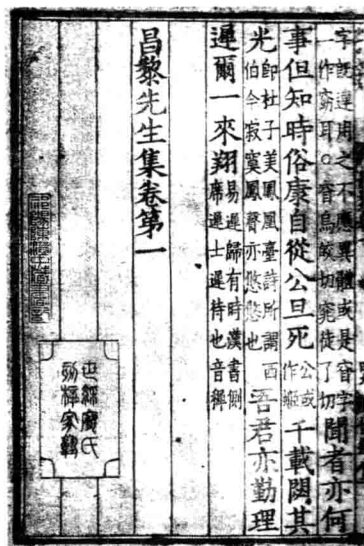 字既違用之不應異體或是窅字
一作窈耳○窅烏皎切窕徒了切
聞者亦何
事但知時俗康自從公旦死
公或
作姬
千載閟其
光
即杜子美鳳凰臺詩所謂西
伯今寂寞鳳聲亦悠悠也
吾君亦勤理
遲爾一來翔
易遲歸有時漢書側
席遲士遲待也音稺
昌黎先生集卷第一
世綵廖氏
刻梓家塾